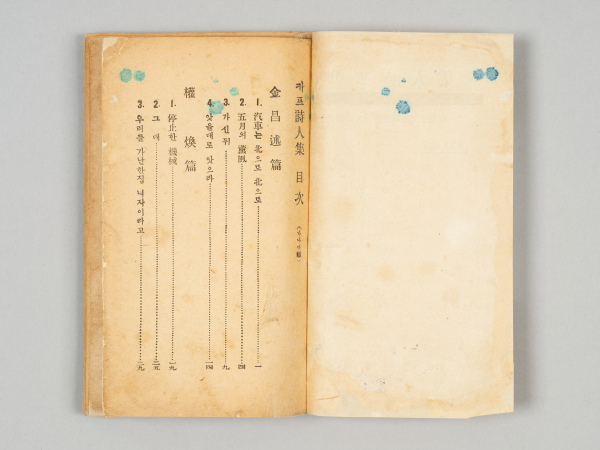 카프詩人集 目次
金昌述篇
1. 汽車는 北으로 北으로 一
2. 五月의 薰風 四
3. 가신 뒤 九
4. 앗을대로 앗으라 一四
權煥篇
1. 停止한 機械 一九
2. 그대 二五
3. 우리를 가난한집 녀자이라고 二九